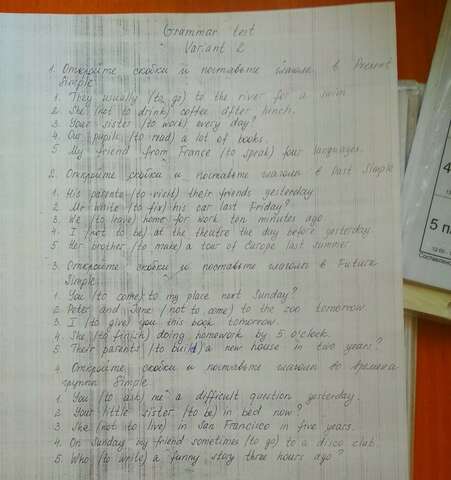 Grammar test
Variant 2
1. Откройте скобки и поставьте глаголы в Present
Simple
1. They usually (to go) to the river for a swim.
2. She (not to drink) coffee after lunch.
3. Your sister (to work) every day?
4. Our pupils (to read) a lot of books.
5. My friend from France (to speak) four languages.
2. Откройте скобки и поставьте глаголы в Past Simple
1. His parents (to visit) their friends yesterday.
2. Mr White (to fix) his car last Friday?
3. We (to leave) home for work ten minutes ago.
4. I (not to be) at the theatre the day before yesterday
5. Her brother (to make) a tour of Europe last summer.
3. Откройте скобки и поставьте глаголы в Future
Simple
1. You (to come) to my place next Sunday?
2. Peter and Jane (not to come) to the zoo tomorrow.
3. I (to give) you this book tomorrow.
4. She (to finish) doing homework by 5 o'clock.
5. Their parents (to build) a new house in two years?
4. Откройте скобки и поставьте глаголы во времена
группы Simple
1. You (to ask) me a difficult question yesterday.
2. Your little sister (to be) in bed now?
3. She (not to live) in San Francisco in five years.
4. On Sunday my friend sometimes (to go) to a disco club.
5. Who (to write) a funny story three hours ago?
4
5 п